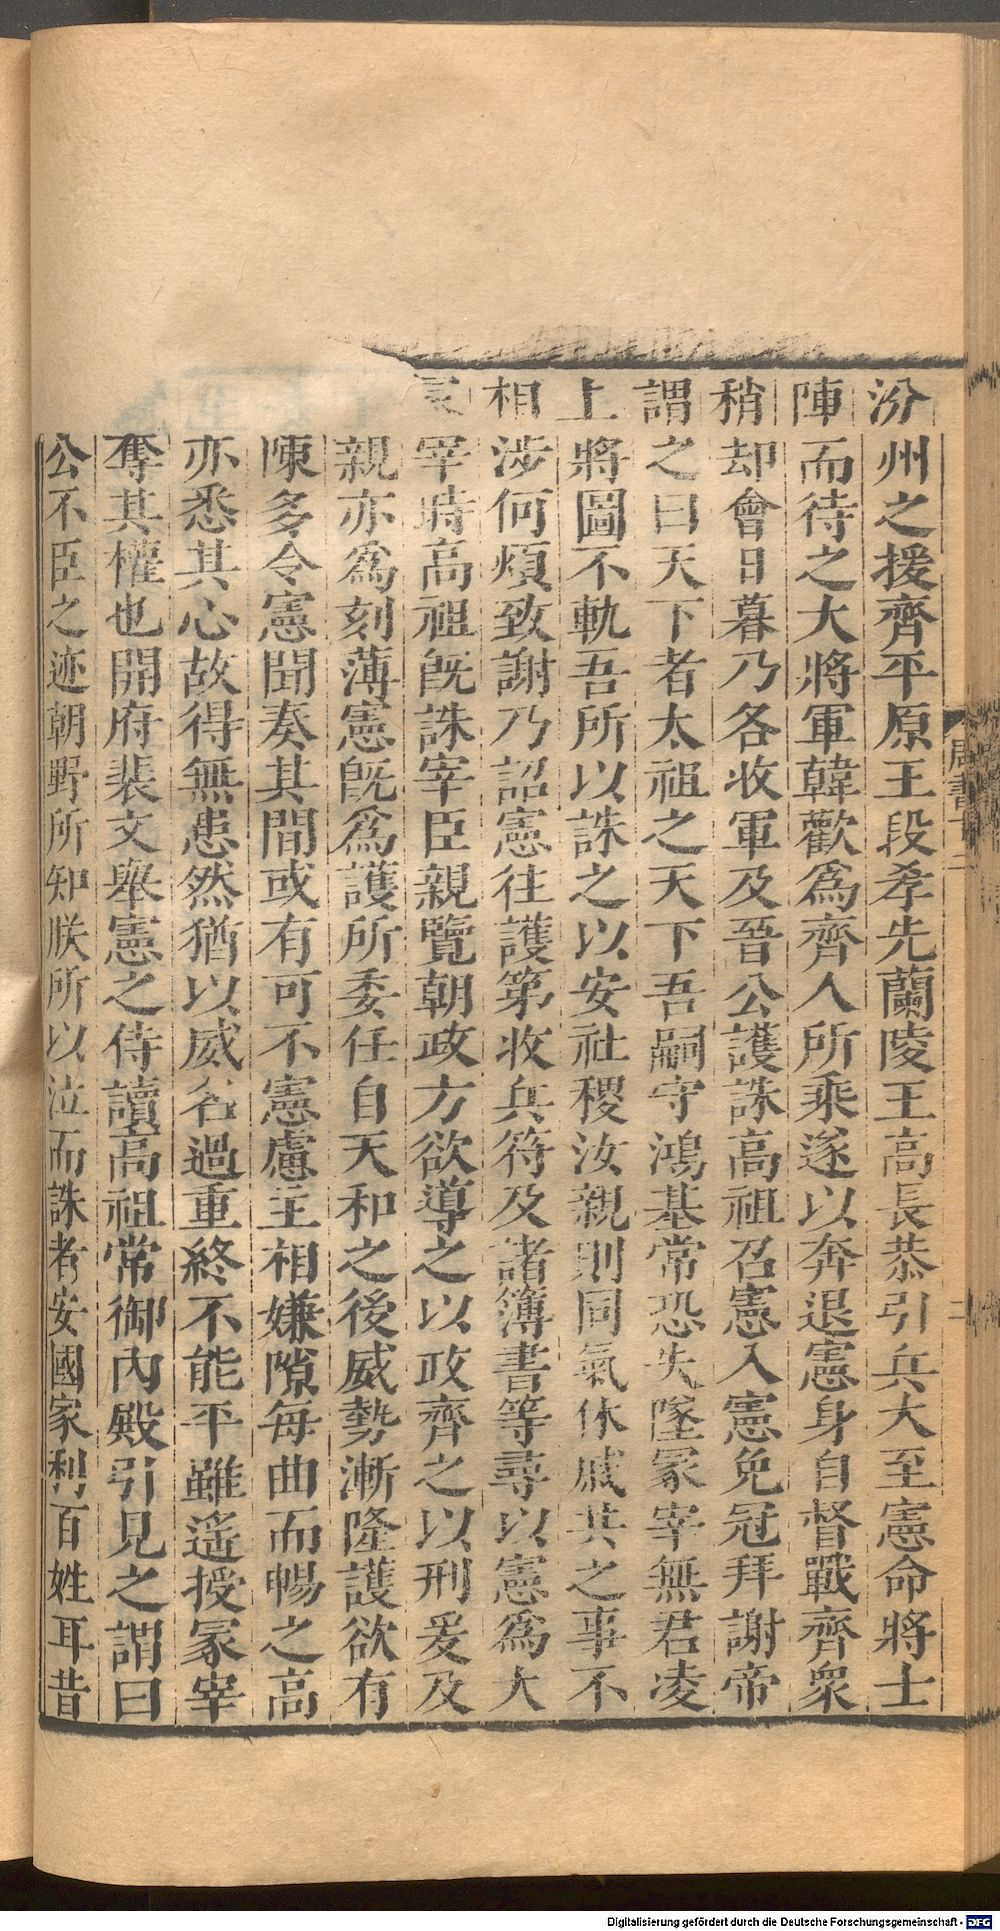 汾州之援齊平原王段孝先蘭陵王高長恭引兵大至憲命將士
陣而待之大將軍韓歡爲齊人所乘遂以奔退憲身自督戰齊衆
稍却會日暮乃各收軍及晉公護誅高祖召憲入憲免冠拜謝帝
謂之曰天下者太祖之天下吾嗣守鴻基常恐失墜冢宰無君凌
上將圖不軌吾所以誅之以安社稷汝親則同氣休戚共之事不
相涉何煩致謝乃詔憲往護第收兵符及諸簿書等尋以憲爲大
冢宰時高祖旣誅宰臣親覽朝政方欲導之以政齊之以刑爰及
親亦爲刻薄憲旣爲護所委任自天和之後威勢漸隆護欲有
陳多令憲聞奏其間或有可不憲慮主相嫌隙每曲而暢之高
亦悉其心故得無患然猶以威名過重終不能平雖遥授冢宰
奪其權也開府裴文舉憲之侍讀高祖常御內殿引見之謂曰
公不臣之迹朝野所知朕所以泣而誅者安國家利百姓耳昔
周書十二
二
Digitalisierung gefördert durch die Deutsche Forschungsgemeinschaft - DFG